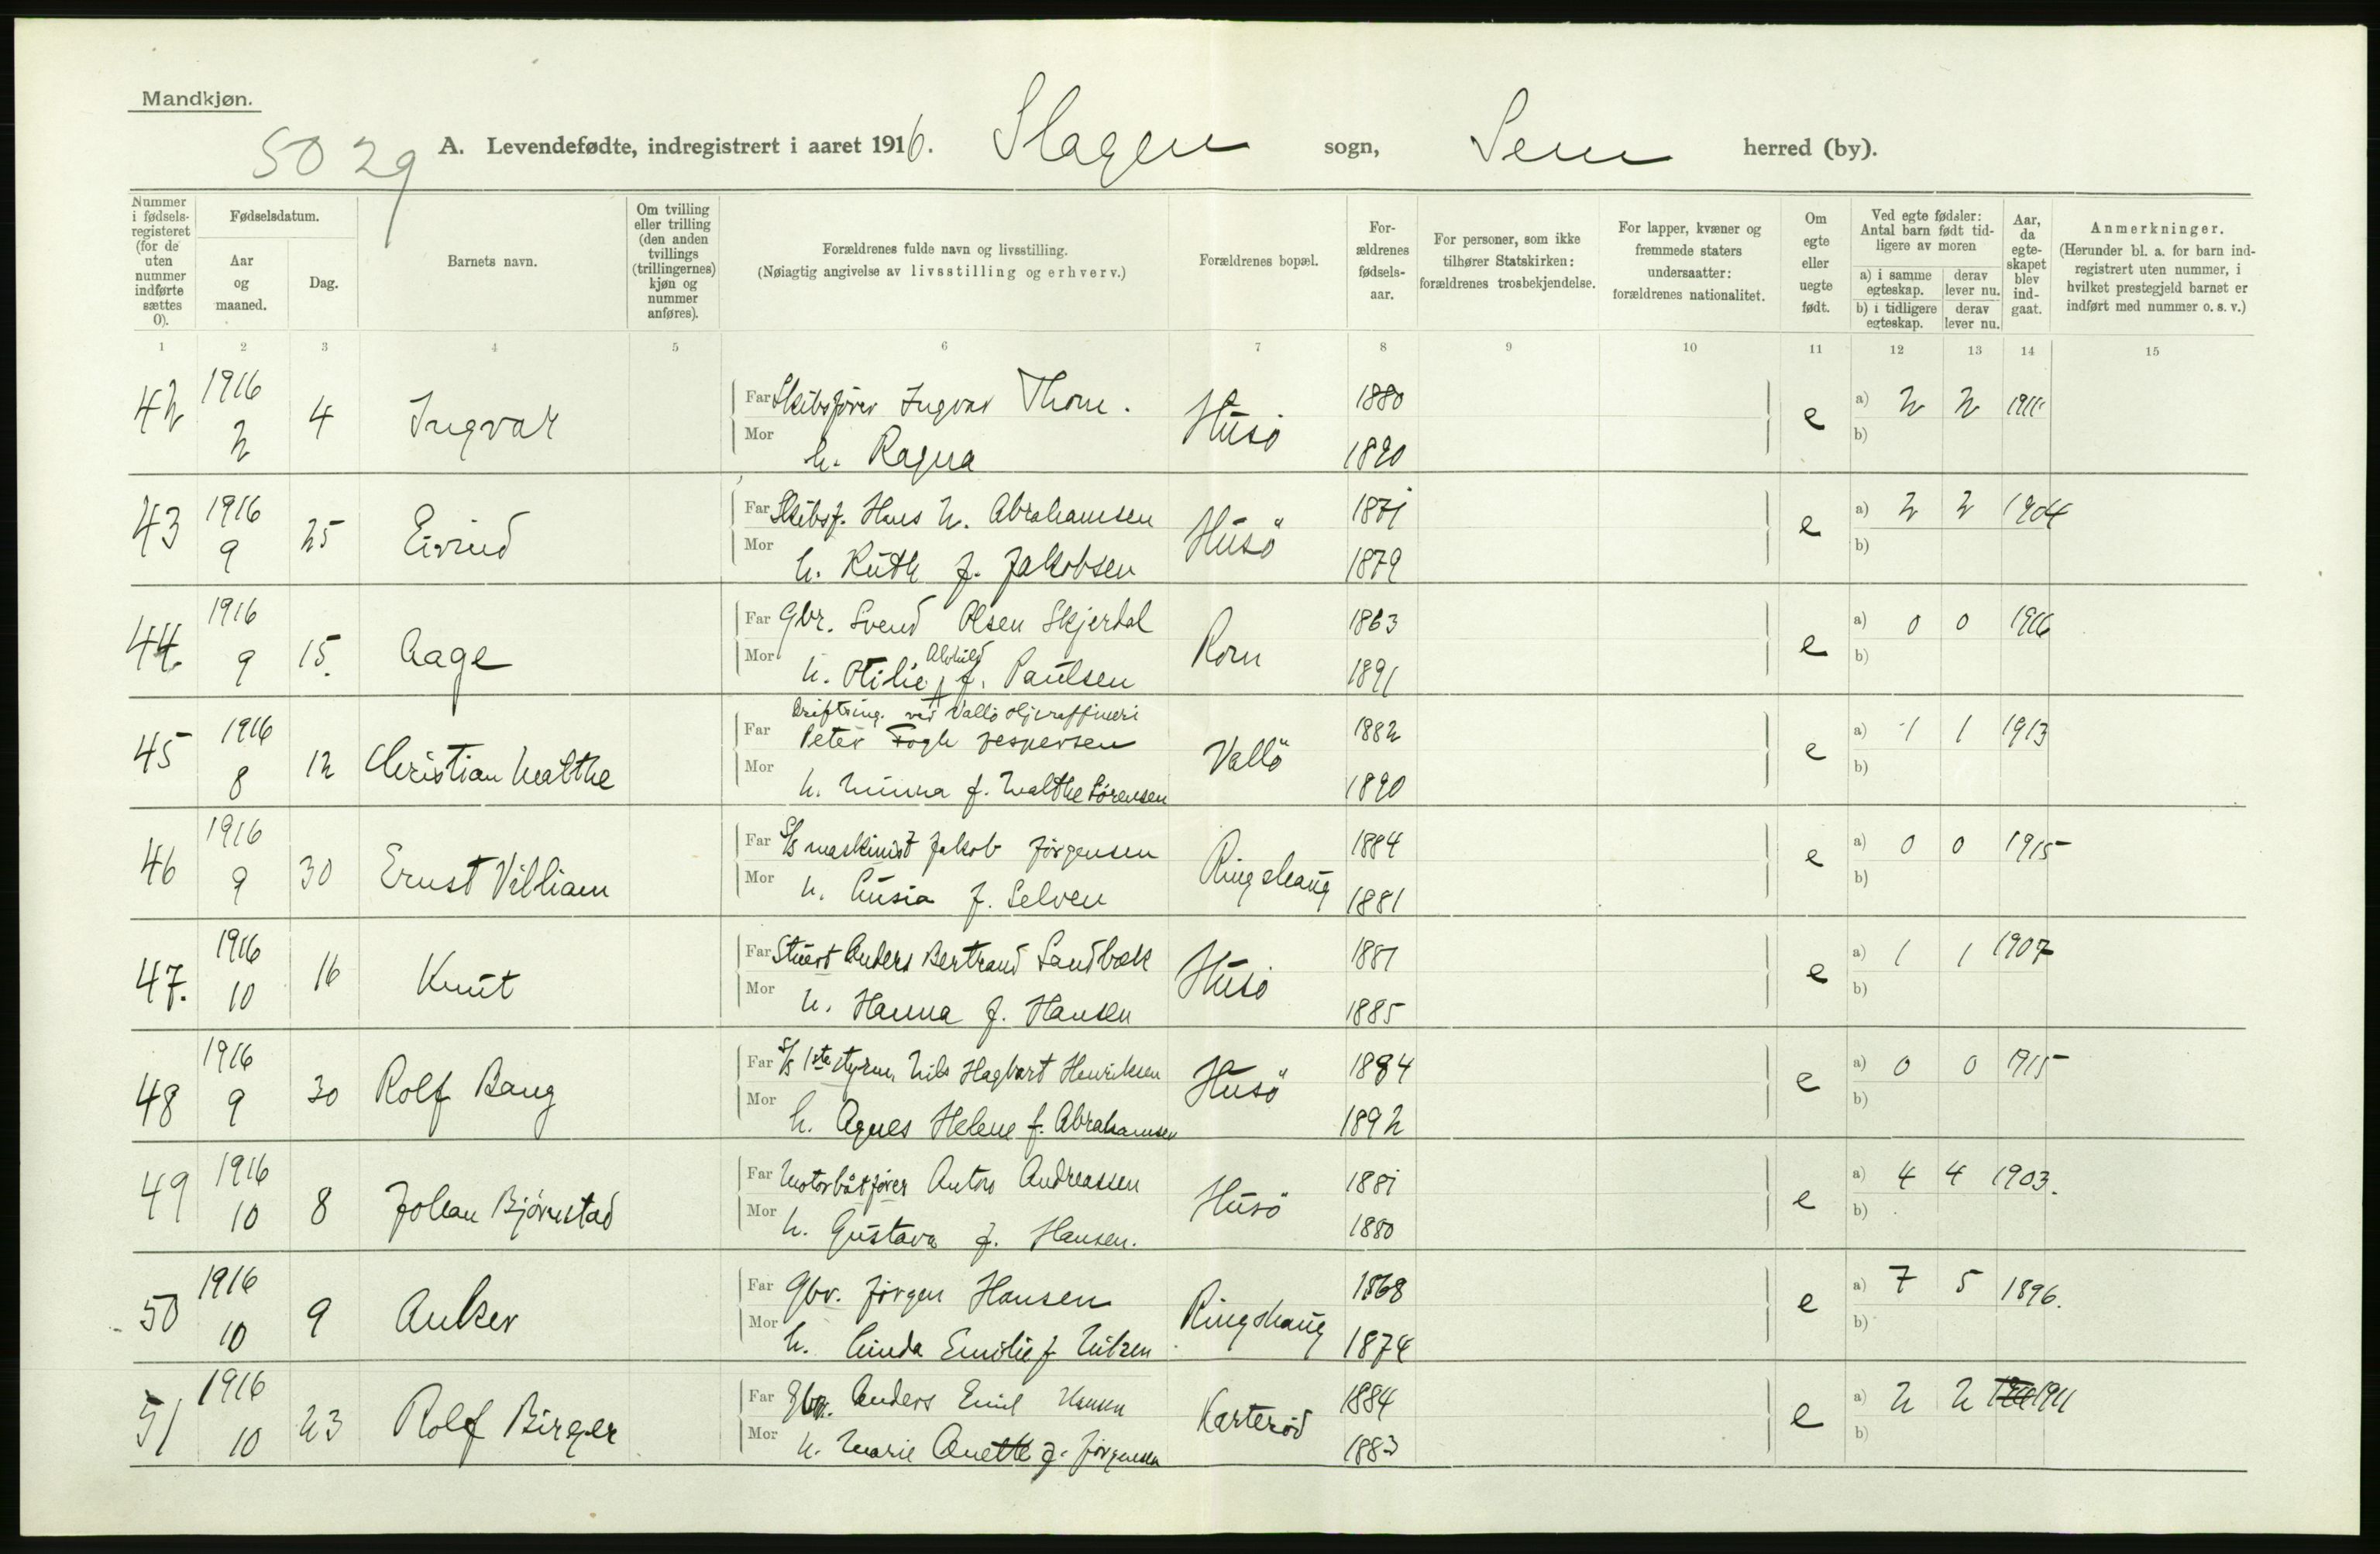 Mandkjøn.
5029
A. Levendefødte, indregistrert i aaret 1916. Slagen sogn, Sem herred (by).
Nummer i fødsels-registeret (for de uten nummer indførte sættes 0).
Fødselsdatum.
Aar og maaned.
Dag.
Barnets navn.
Om tvilling eller trilling (den anden tvillings (trillingernes) kjøn og nummer anføres).
Forældrenes fulde navn og livsstilling.
(Nøiagtig angivelse av livsstilling og erhverv.)
Forældrenes bopæl.
For-ældrenes fødsels-aar.
For personer, som ikke tilhører Statskirken: forældrenes trosbekjendelse.
For lapper, kvæner og fremmede staters undersaatter: forældrenes nationalitet.
Om egte eller uegte født.
Ved egte fødsler: Antal barn født tid-ligere av moren
a) i samme egteskap. derav lever nu.
b) i tidligere egteskap. derav lever nu.
Aar, da egte-skapet blev ind-gaat.
Anmerkninger.
(Herunder bl. a. for barn ind-registrert uten nummer, i hvilket prestegjeld barnet er indført med nummer o. s. v.)
1 2 3 4 5 6 7 8 9 10 11 12 13 14 15
42 1916 2 4 Ingvar Far Skibsfører Ingvar Thom. Husö 1880 e a) 2 2 1911
Mor h. Ragna 1890 b)
43 1916 9 25 Eivind Far Skibsf. Hans N. Abrahamsen Husö 1871 e a) 2 2 1904
Mor h. Ruth f. Jakobsen 1879 b)
44. 1916 9 15. Aage Far Gbr. Svend Olsen Skjerdal Rom 1863 e a) 0 0 1916
Mor h. Otilie Alvhild f. Paulsen 1891 b)
45 1916 8 12 Christian Malthe Far Driftsing. ved Vallö Oljeraffineri
Peter Fogh Jespersen Vallö 1882 e a) 1 1 1913
Mor h. Minna f. Malthe Sørensen 1890 b)
46 1916 9 30 Ernst Villiam Far S/S maskinist Jakob Jörgensen Ringshaug 1884 e a) 0 0 1915
Mor h. Lusia f. Selven 1881 b)
47. 1916 10 16 Knut Far Stuert Anders Bertrand Sandbæk Husö 1881 e a) 1 1 1907
Mor h. Hanna f. Hansen 1885 b)
48 1916 9 30 Rolf Bang Far S/S 1ste styrm. Nils Hagbart Henriksen Husö 1884 e a) 0 0 1915
Mor h. Agnes Helene f. Abrahamsen 1892 b)
49 1916 10 8 Johan Björnstad Far Motorbåtfører Anton Andreassen Husö 1881 e a) 4 4 1903.
Mor h. Gustava f. Hansen. 1880 b)
50 1916 10 9 Anker Far Gbr. Jörgen Hansen Ringshaug 1868 e a) 7 5 1896.
Mor h. Linda Emilie f. Nilsen 1874 b)
51 1916 10 23 Rolf Birger Far Gbr. Anders Emil Hansen Karterød 1884 e a) 2 2 1911
Mor h. Marie Anette f. Jörgensen 1883 b)